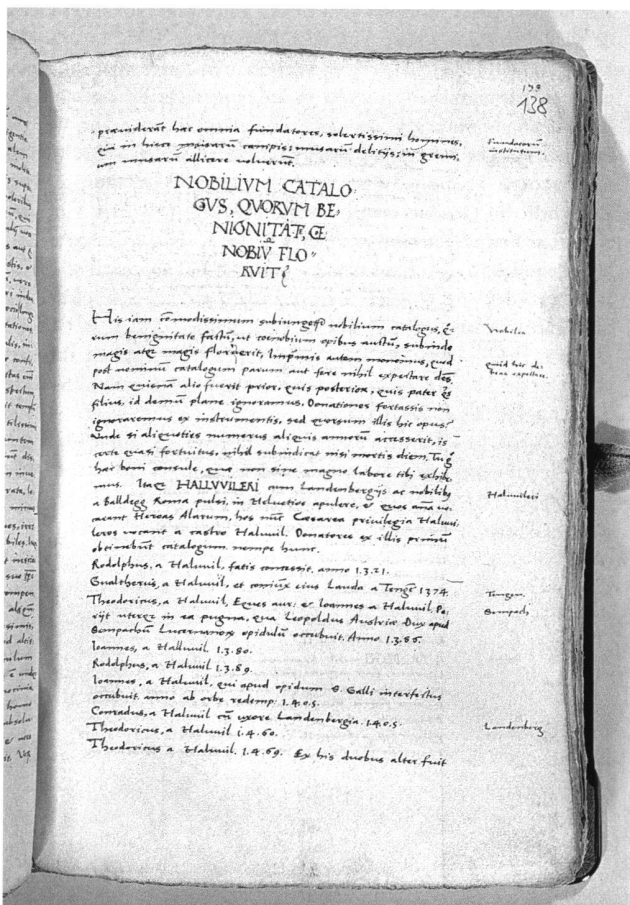 138
praeviderāt haec omnia fundatores, solertissimi homines,
qui in hisce musarū campis; musarū delitijs; in gremi,
um musarū allicere voluerūt.
Fundatorū
institutum.
NOBILIVM CATALO
GVS, QVORVM BE,
NIGNITATE, CE
NOBIV̄ FLO
RVIT
His iam cōmodissimum nobilium catalogus,
rum benignitate factū, ut coenobium opibus auctū, subinde
magis atq; magis floruerit, Inprimis autem monemus, quod
post nominū catalogum parum aut fere nihil expectare des
Nam quisnā alio fuerit prior, quis posterior, quis pater
filius, id demū plane ignoramus, Donationes fortassis non
ignoraremus ex instrumentis, sed quorsum illis hic opus?
Unde si aliquoties numerus aliquis annorū accesserit, is
certe quasi fortuitus, nihil subindicat nisi mortis diem, Tu
haec boni consule, quae non sine magno labore tibi exhibe,
mus. Itaq HALLVVILERI cum Landenbergijs ac nobilibꝰ
a Baldegg Roma pulsi, in Helvetios apulere, & quos
cant Heroas Alarum, hos nūc Caesarea privilegia Halvui,
leros vocant a castro Haluuil. Donatores ex illis primū
obtinebūt catalogum nempe hunc.
Rodolphus, a Haluuil, fatis concessit, anno 1.3.21.
Gualtherus, a Haluuil, et coniūx eius Lauda a Tengē 1374.
Theodoricus, a Haluuil, Eques aur. & Ioannes a Haluuil. Pe,
rijt uterq in ea pugna, qua Leopoldus Austriae Dux apud
Sempachū Lucernanorū opidulū occubuit. Anno 1.3.86.
Ioannes, a Halluuil. 1.3.80.
Rodolphus, a Haluuil 1.3.89.
Ioannes, a Haluuil, qui apud opidum S. Galli interfectus
occubuit. anno ab orbe redemp: 1.4.0.5.
Conradus, a Haluuil cū uxore Landenbergia. 1.4.0.5.
Theodoricus, a Haluuil 1.4.60.
Theodoricus a Haluuil. 1.4.69. Ex his duobus alter fuit
Nobiliū
quid hic de,
Haluuileri
Tengen.
Sempach
Landenberg